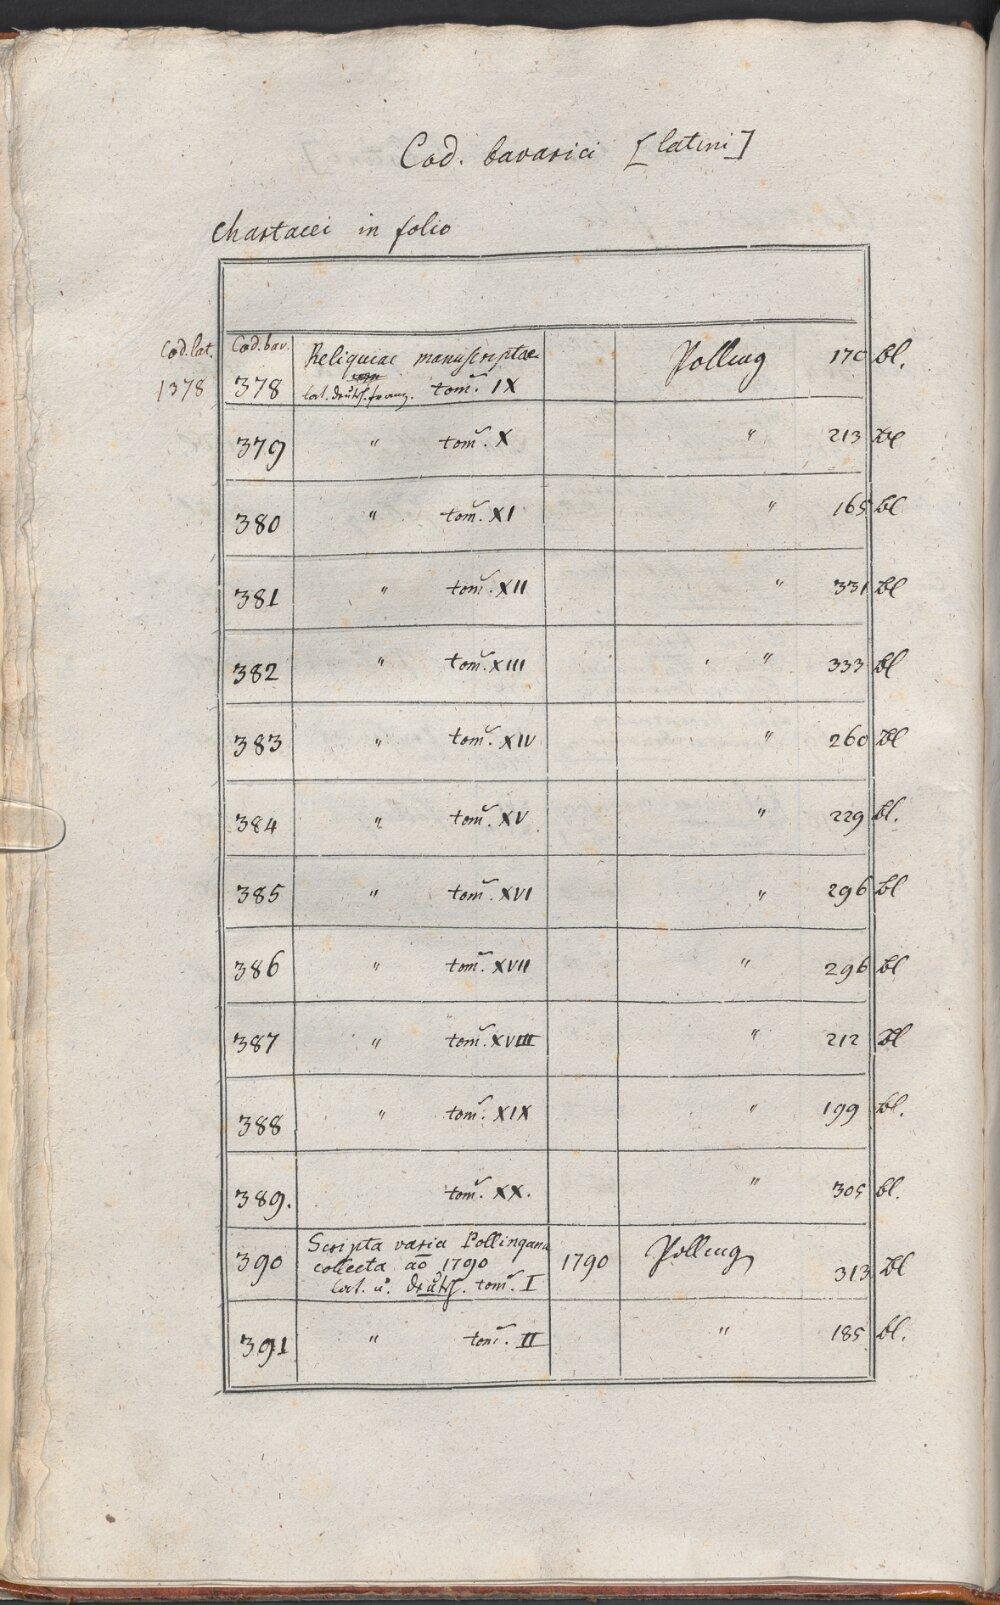 Cod. bavarici [latini]
Chartacei in folio
Cod. lat. Cod. bav. Reliquiae manuscriptae Polling 170 bl.
1378 378 lat. deutsch. franz. tom. IX
379 " tom. X " 213 Bl
380 " tom. XI " 165 bl
381 " tom. XII " 331 Bl
382 " tom. XIII " 333 Bl
383 " tom. XIV " 260 Bl
384 " tom. XV " 229 bl.
385 " tom. XVI " 296 bl
386 " tom. XVII " 296 bl
387 " tom. XVIII " 212 Bl
388 " tom. XIX " 199 bl.
389. tom. XX. " 305 bl.
390 Scripta varia Pollingana 1790 Polling 313 Bl
collecta aō 1790
lat. u. deutsch. tom. I
391 " tom. II " 185 bl.